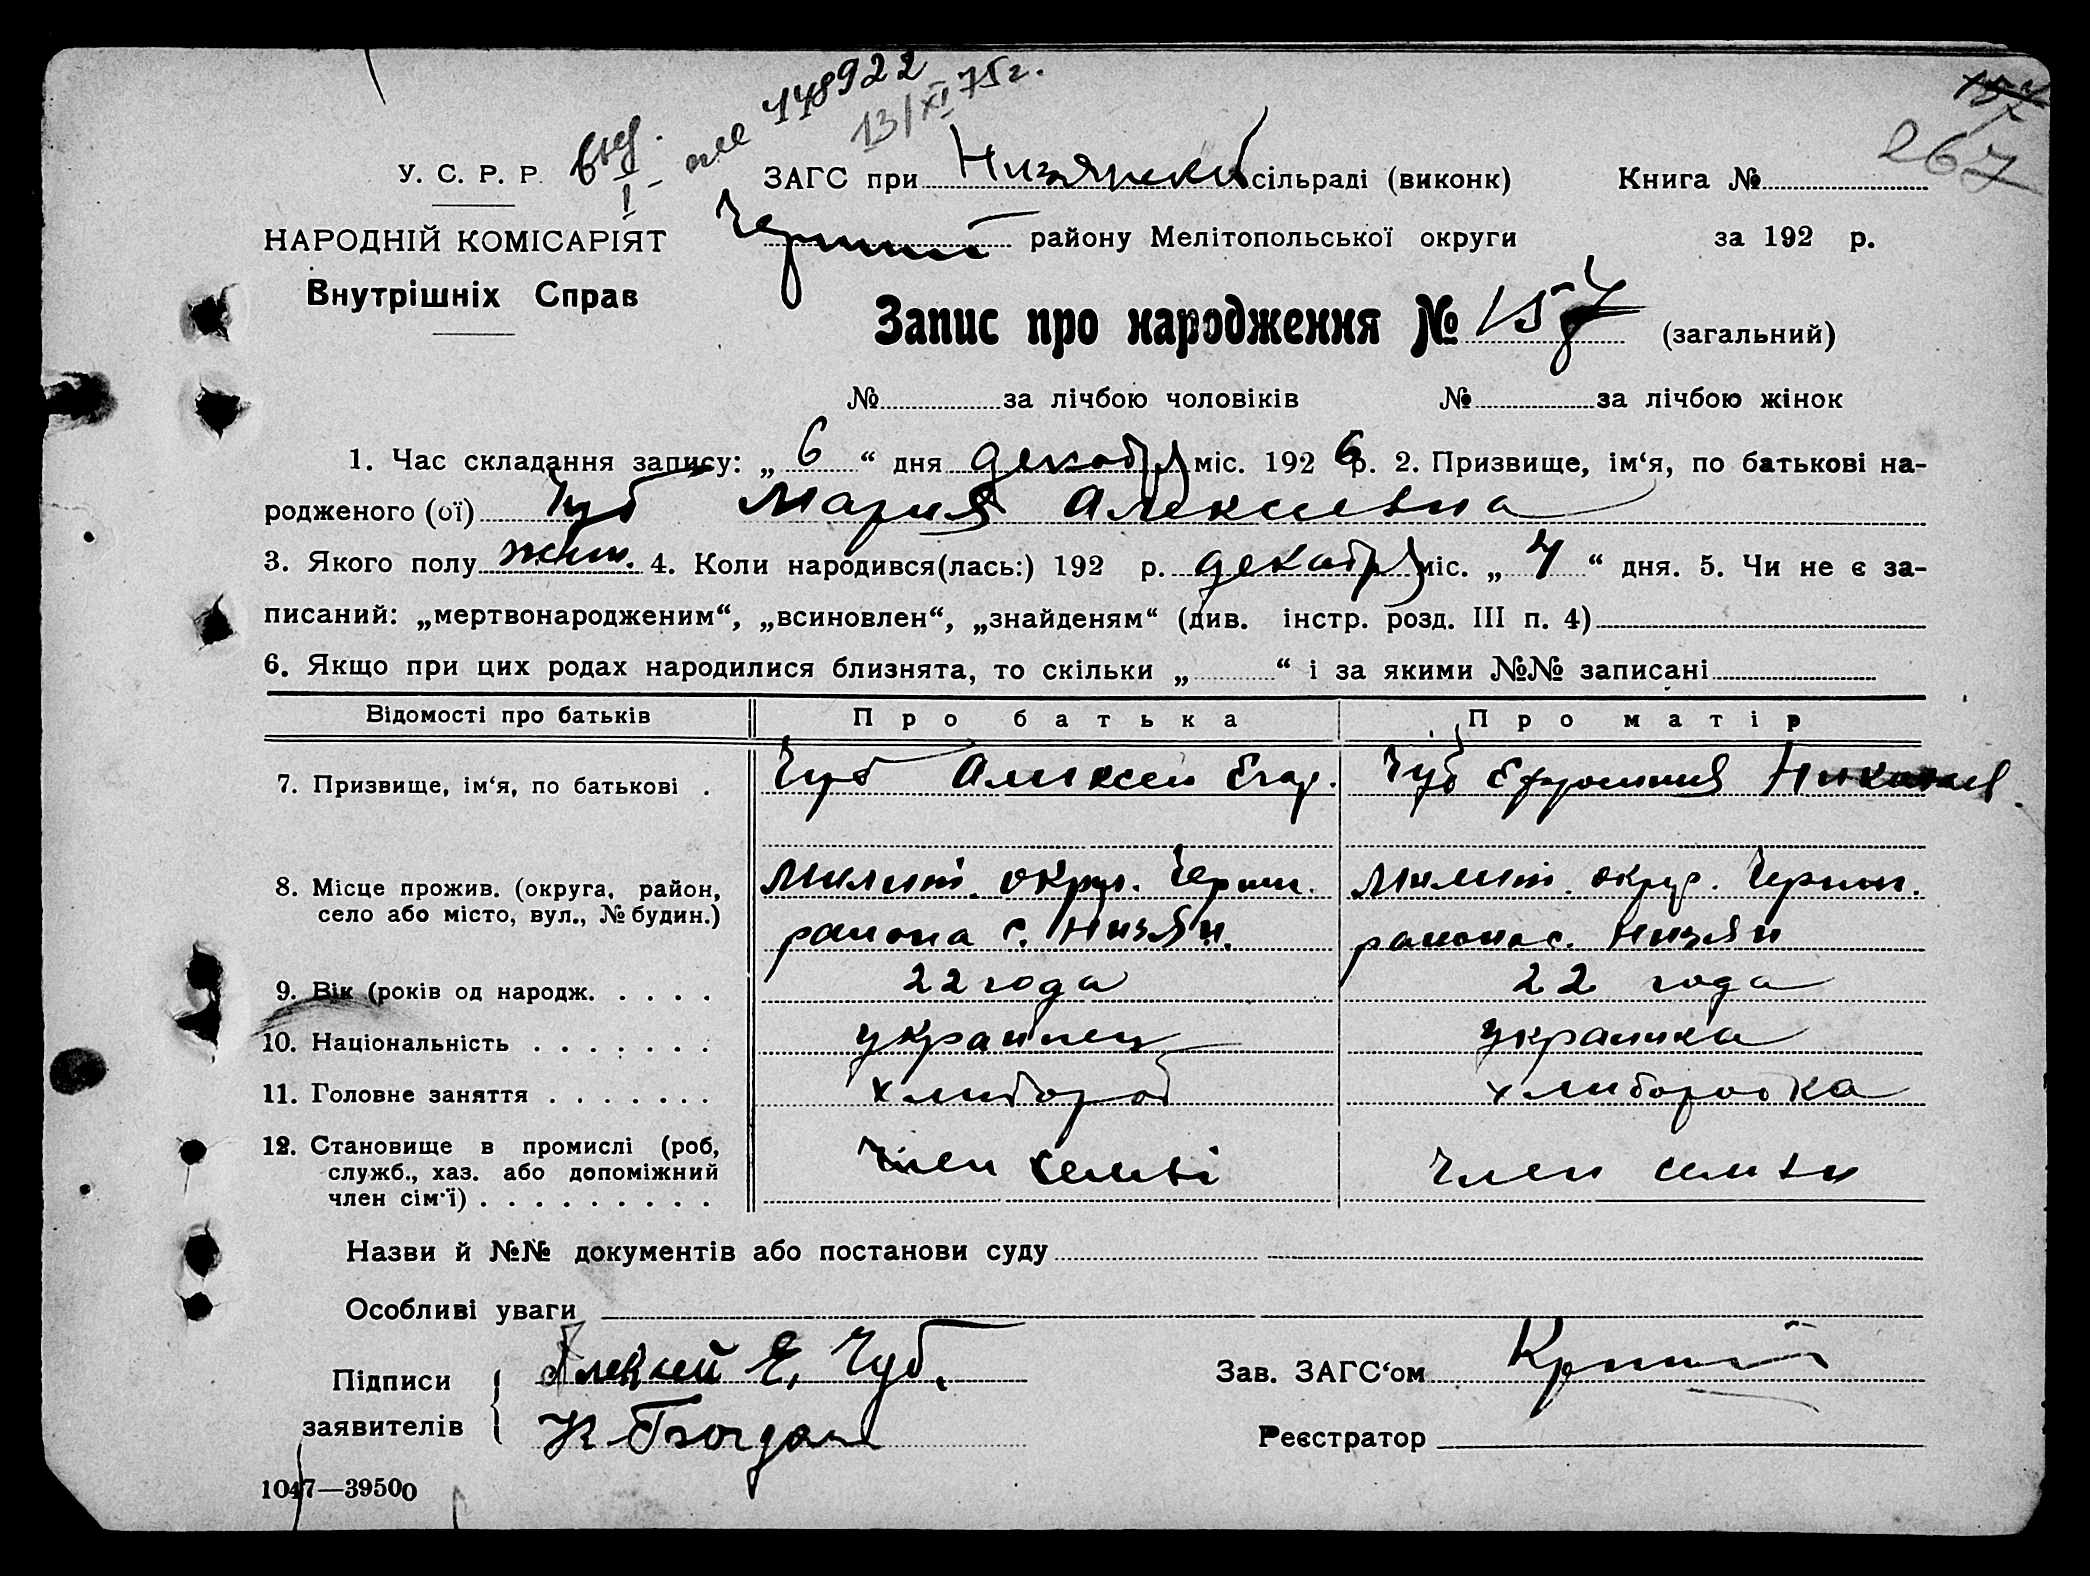 148922
13/XI 75г.
267
У. С. Р. Р.
ЗАГС при Низянской сільраді (виконк) Книга №
НАРОДНІЙ КОМІСАРІЯТ
району Мелітопольської округи за 192 р.
Внутрішніх Справ
Запис про народження № 157 (загальний)
№ за лічбою чоловіків № за лічбою жінок
1. Час складання запису: „6“ дня декабря міс. 1926 р. 2. Призвище, ім‘я, по батькові на-
родженого (ої) Чуб Мария Алексиевна
3. Якого полу жен. 4. Коли народився(лась:) 192 р. декабря міс. „4“ дня. 5. Чи не є за-
писаний: „мертвонародженим“, „всиновлен“, „знайденям“ (див. інстр. розд. III п. 4)
6. Якщо при цих родах народилися близнята, то скільки „ “ і за якими №№ записані
Відомості про батьків Про батька Про матір
7. Призвище, ім‘я, по батькові . Чуб Аликсеи Егор. Чуб Ефросиния Николаев.
8. Місце прожив. (округа, район, Милит. округ. Черниг. Милит. округ. Черниг.
село або місто, вул., № будин.) раиона с. Низян. раиона с. Низян
9. Вік (років од народж. . . . . 22 года 22 года
10. Національність . . . . . . . украинец украинка
11. Головне заняття . . . . . . . хлибороб хлиборобка
12. Становище в промислі (роб, Член семьі Член семьи
служб., хаз. або допоміжний
член сім‘ї) . . . . . . . . .
Назви й №№ документів або постанови суду
Особливі уваги
Підписи Алексей Е. Чуб. Зав. ЗАГС‘ом
заявителів К Богдан Реєстратор
1047—39500